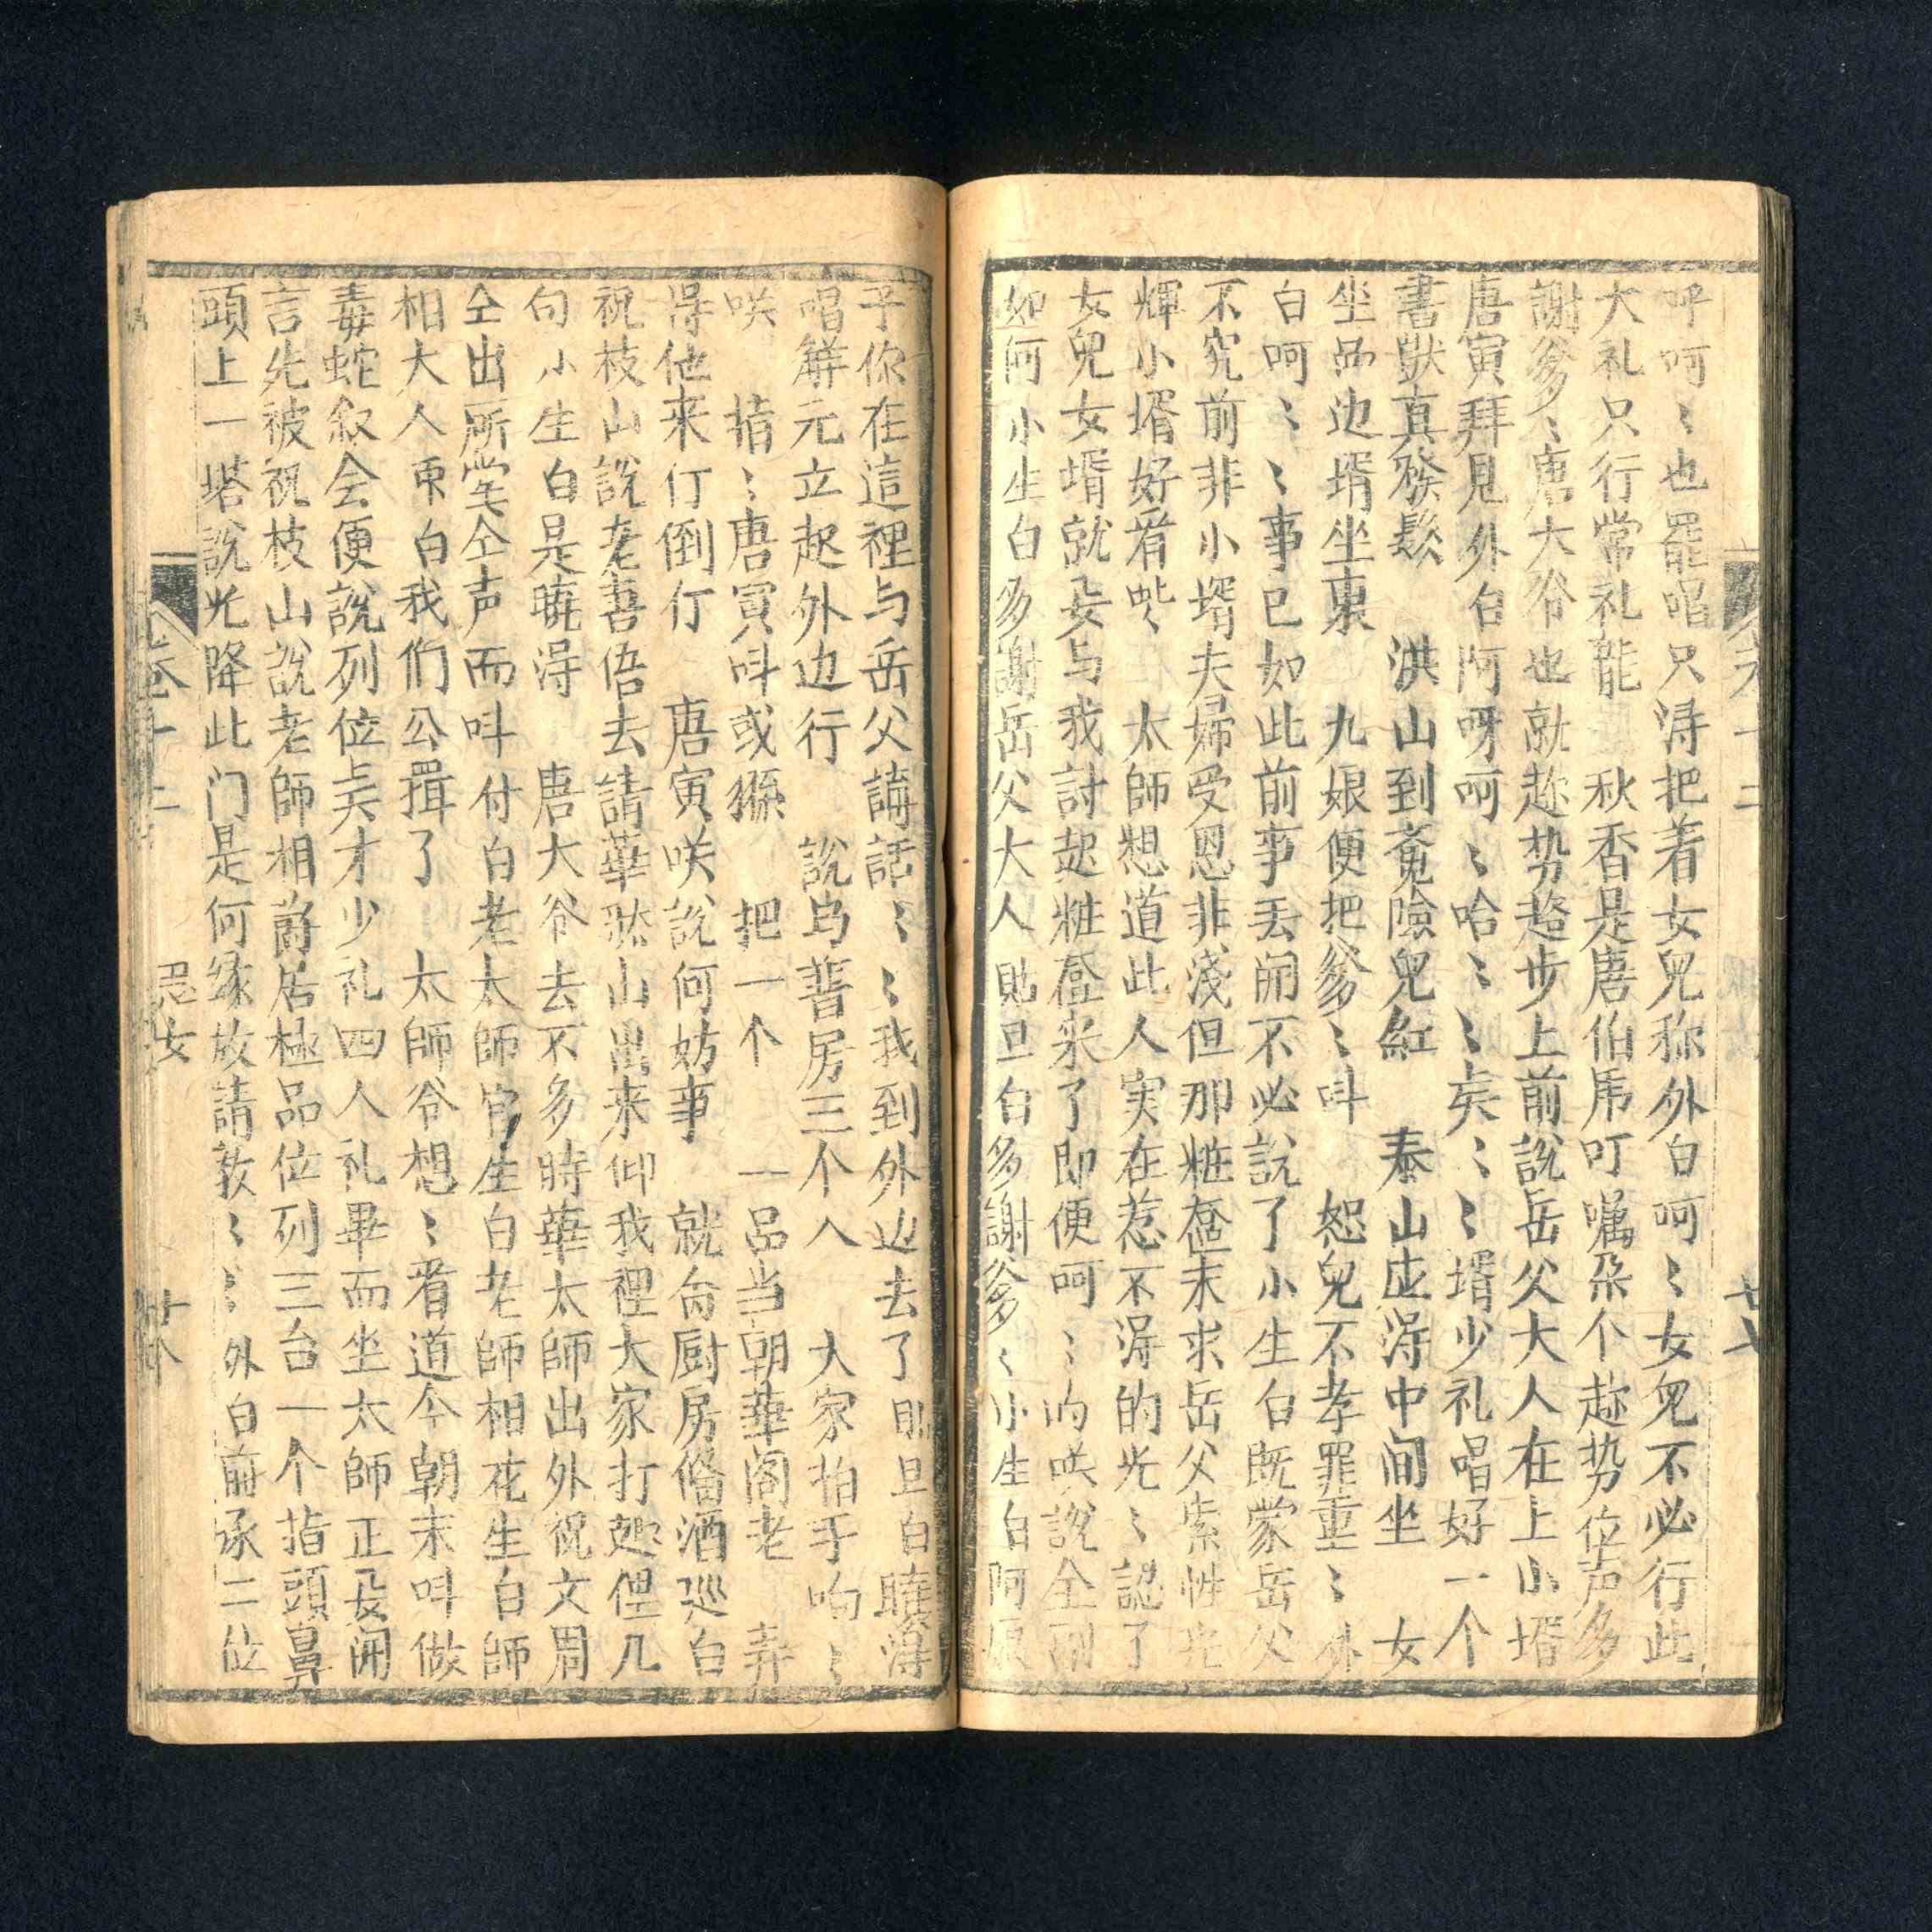 呼呵〻也罷唱只淂把着女兒称外白呵〻女兒不必行此
大礼只行常礼罷　秋香是唐伯虎叮嘱朶个趂势位声多
謝爹〻唐大爷也就趂势趋步上前說岳父大人在上小壻
唐寅拜見外白阿呀呵〻哈〻〻矣〻〻壻少礼唱好一个
書獃真發鬆　洪山到斎兔險兒紅　泰山应淂中间坐　女
坐品边壻坐東　九娘便把爹〻呌　恕兒不孝罪重〻外
白呵〻〻事已如此前事丟開不必說了小生白既蒙岳父
不究前非小壻夫婦受恩非淺但那粧奩末求岳父索性光
輝小壻好看些　太師想道此人実在惹不淂的光〻認了
女兒女壻就要与我討起粧奩来了即便呵〻的咲說全到
如何小生白多謝岳父大人貼旦白多謝爹〻小生白阿娘
子你在這裡与岳父講話〻〻我到外边去了貼旦白曉淂
唱觧元立起外边行　說与書房三个人　大家拍手响〻
咲　指〻唐寅呌或猻　把一个　一品当朝華阁老　弄
得他来仃倒仃　唐寅咲說何妨事　就命厨房俻酒巡白
祝枝山說老書倍去請華然山出来仰我裡大家打趣俚几
句小生白是曉淂　唐大爷去不多時華太師出外祝文周
仝出所堂仝声而呌付白老太師官生白老師相花生白師
相大人末白我们公揖了　太師爷想〻看道今朝末呌做
毒蛇叙会便說列位吴才少礼四人礼畢而坐太師正要開
言先被祝枝山說老師相爵居極品位列三台一个指頭鼻
頭上一塔說光降此门是何缘故請教〻〻外白前承二位
卷十二
忍女
廿八
卷十二
廿七